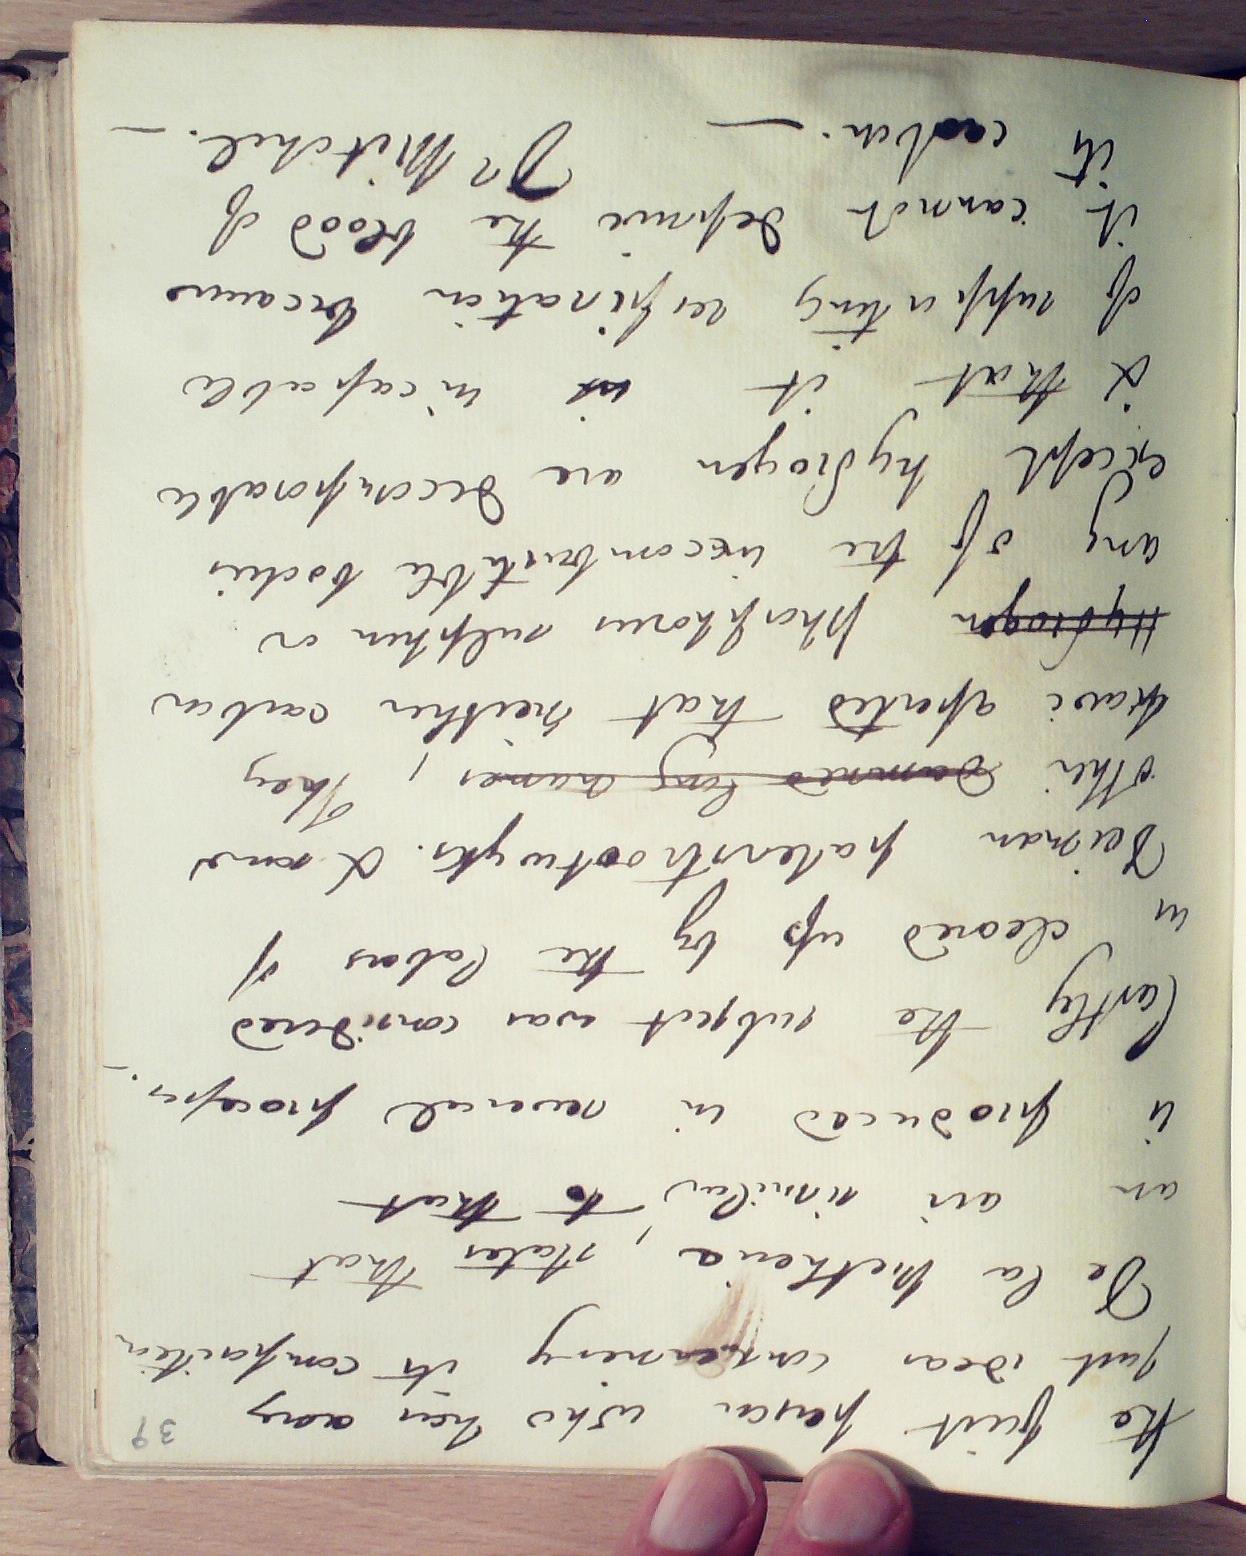 39
the first person who has any
just ideas concerning its composition
De la Metherie, states that
an air similar, to that
is produced in several process. —
Lastly the subject was considered
in cleared up by the labors of
Deiman patenstrootwyk. & and
other Damned long names, They
have asserted that neither carbon
Hydrogen phosphorus sulphur or
any of the uncombustible bodies
except hydrogen are decomposable
& that it is incapable
of supporting respiration because
it cannot deprive the blood of
its carbon. — Dr Mitchel. —